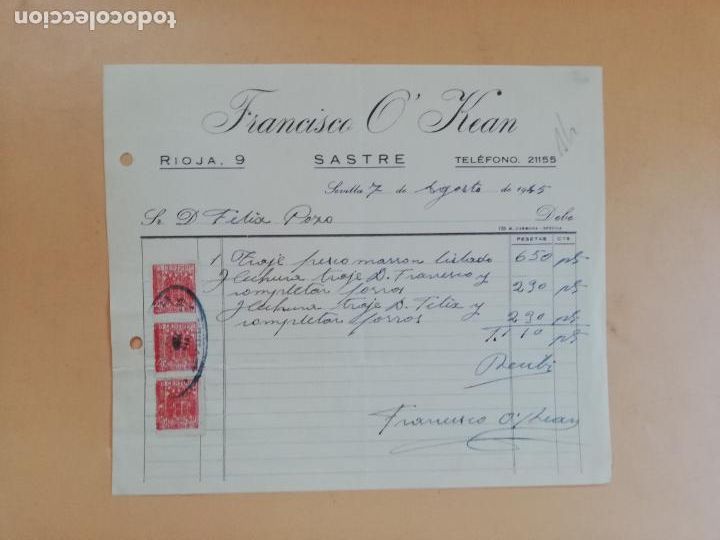 todocoleccion.net
Francisco O' Kean
RIOJA, 9 SASTRE TELÉFONO, 21155
Sevilla 7 de Agosto de 1945
Sr. D. Félix Pozo Debe
PESETAS CTS.
1 Traje fresco marron listado 650 pts
1 hechura traje D. Francisco y
completar forros 290 pts
1 hechura traje D. Félix y
completar forros 290 pts
Recibi
Francisco O'Kean